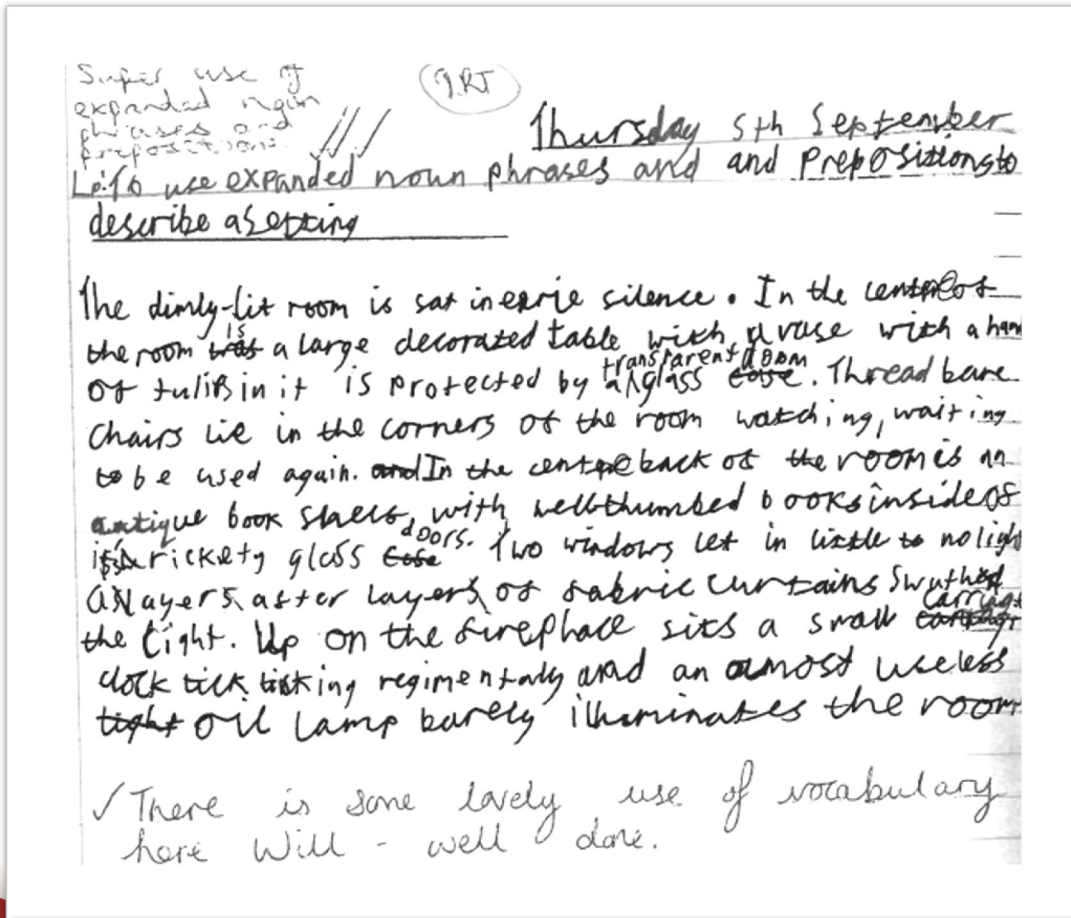 Super use of
expanded noun
phrases and
prepositions.
Thursday 5th September
L.O: To use expanded noun phrases and and prepositions to
describe a setting
The dimly-lit room is sat in eerie silence. In the centre of
is
the room was a large decorated table with a vase with a
transparent doom
of tulips in it is protected by a glass case. Thread bare
chairs lie in the corners of the room watching, waiting
to be used again. and In the centre back of the room is an
antique book shelf, with well-thumbed books inside of
doors.
it's rickety glass case Two windows let in little to no light
as layers after layers of fabric curtains
carriage
the light. Up on the fireplace sits a small
clock tick ticking regimentally and an amost useless
light oil lamp barely illuminates the room
There is some lovely use of vocabulary
here Will - well done.